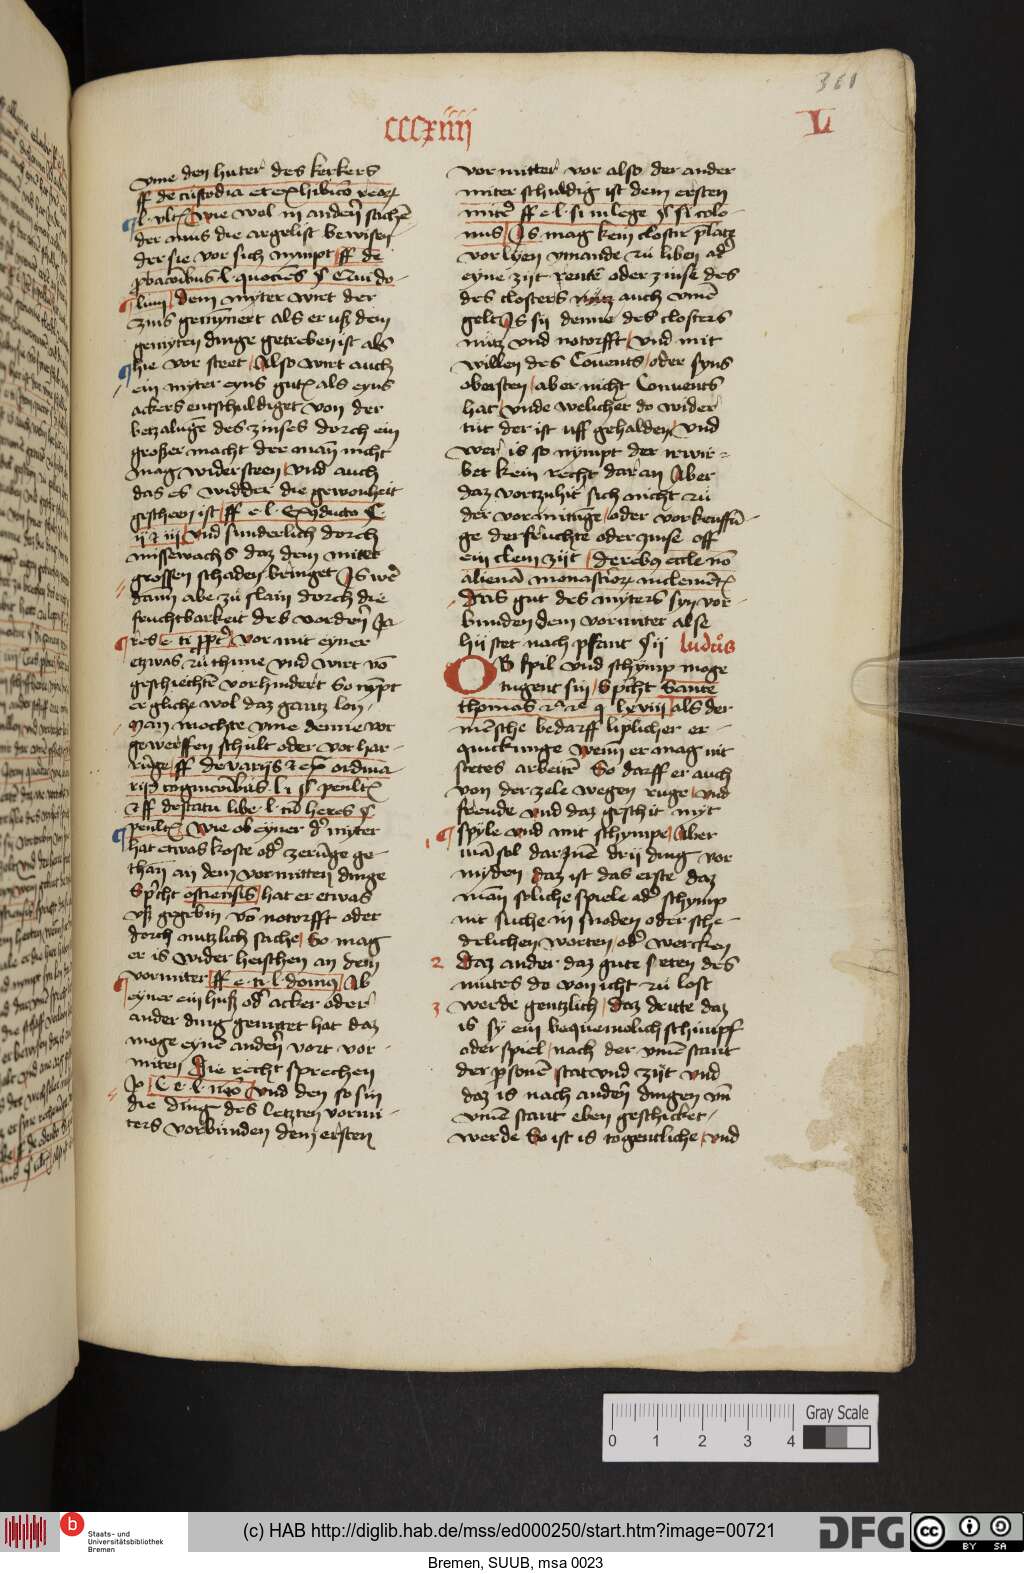 361
cccxiiii
L
vme den huter des kerkers
ff de custodia et exhibico reor
l vlt Wie wol in andern sachen
der mus die argelist bewisen
der sie vor sich nympt ff de
l quociens § Qui do
lum dem myter wirt der
zins gemynert als er uß dem
gemyten dinge getreben ist als
hie vor steet Also wirt auch
ein myter eyns gutz als eyns
ackers entschuldiget von der
betzalunge des zinses dorch ein
großer macht der man nicht
mag widersteen vnd auch
das es widder die gewonheit
gescheen ist ff e l Ex §
ij vnd sunderlich dorch
missewachs daz dem miter
grossen schaden bringet Is wer
dann abe zu slain dorch die
fruchtbarkeit des vordern Ja
res e ti vor mit eyner
etzwas zu thune vnd wirt von
geschiechten vorhindert So nympt
er gliche wol daz gantz lon
Man mochte vme denne vor
gewerffen schult oder vor har
runge ff de varijs et ex ordina
rijs cognicionibus l i § penult
et ff de statu libe l
penult Wie ob eyner der myter
hat etwas koste oder zerunge ge
than an dem vormitten dinge
Spricht ostiensis hat er etwas
vß gegebin von notorfft oder
dorch nutzlich sache So mag
er is wider heischen an dem
vormiter ff e ti l domus Ab
eyner ein huß oder acker oder
ander ding gemitet hat daz
moge eynen andern vort vor
miten Die recht sprechen
Jo C e l nemo vnd den so sin
die ding des letzten vormi
ters vorbunden dem ersten
vormitter vor also der ander
miter schuldig ist dem ersten
miter ff e l si in lege § si colo
nus Is mag kein closter platz
vorlyen ymande zu liben ader
eyne zijt rente oder zinse des
des closters nutz auch vmme
gelt Is sij denne des closters
nutz vnd notorfft vnd mit
willen des Convents oder syns
obersten aber nicht Convents
hat vnde welicher do wider
tut der ist uff gehalden vnd
wer is so nympt der irwir
bet kein recht dar an Aber
daz vortzuhit sich nicht zu
der vormitunge oder vorkeuffun
ge der fruchte oder zinse off
ein clein zijt de rebus eccle non
aliena monasterior in clement
Das gut des myters syn vor
bunden dem vormiter alse
hii stet nach pfant § ij ludus
OB spil vnd schymp moge
tugent sin Spricht Sante
thomas q lxviij als der
mensche bedarff liplicher er
quickunge wenn er mag nit
stetes arbeiten So darff er auch
von der zele wegen ruge vnd
freude vnd daz geschit myt
1 spyle vnd mit schympe Aber
man sol dar Inne drij ding vor
myden daz ist das erste daz
man soliche spiele ader schymp
nit suche in snoden oder sche
delichen worten oder wercken
2 Daz ander daz gute seten des
mutes do von icht zu lost
3 werde gentzlich daz dritte daz
is sy ein bequemelich schimpf
oder spiel nach der vmmestant
der personen stat vnd zijt vnd
daz is nach andern dingen vnd
vmmestant eben geschicket
werde So ist is togentliche vnd
0 1 2 3 4
Gray Scale
Staats- und
Universitätsbibliothek
Bremen
(c) HAB http://diglib.hab.de/mss/ed000250/start.htm?image=00721
DFG
cc BY SA
Bremen, SUUB, msa 0023